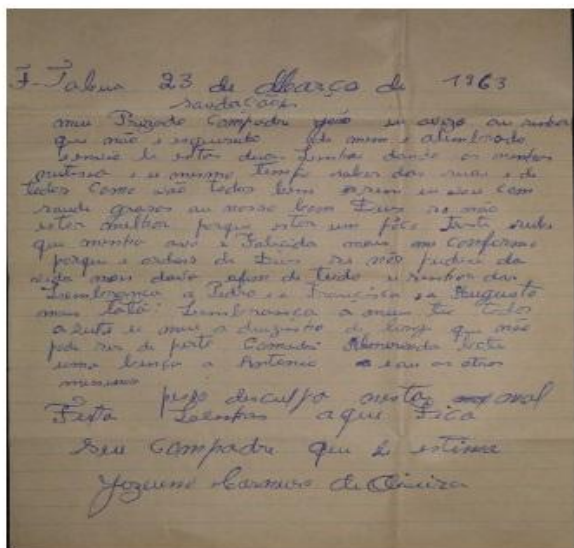 F-Tabua 23 de Março de 1963
saudações
meu Prezado Compadre João eu avizo au senhor
que não e esquesido de mim e alembrado
lenvio le estas duas linhas dando as minhas
nutisia e u mesmo tempo saber das suas e de
todos Como vão todos bem eu vou com
saude grasas au nosso bom Deus so não
estou melhor porque estou um poco triste
que minha avó e Falicida mais me conformo
porque e ordens de Deus so não pudia da
vida mais dava afim de tudo u senhor da
Lembrança a Pedro e a Francisca e a Augusto
mais Lembrança a meu tio todos
a de longe que não
pode ser de perto Comadre bota
uma bença a Antonio e aus otros
meninos
peso disculpa nesta mal
Feita Leenhas aqui Fica
Seu Compadre que le estima
de Oliveira